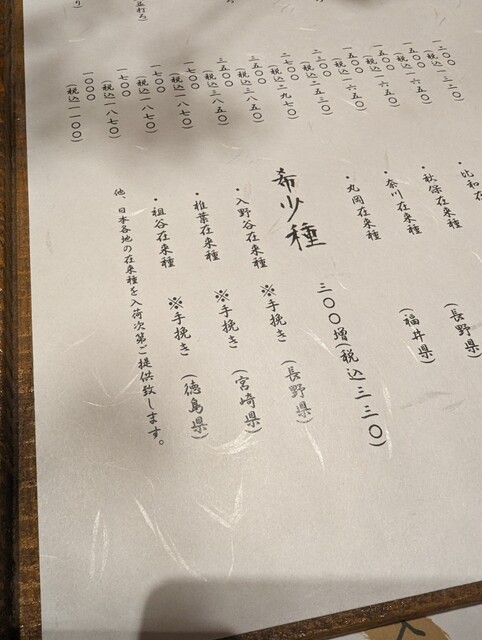 一二〇〇(税込一三二〇)
一五〇〇(税込一六五〇)
一五〇〇(税込一六五〇)
一五〇〇(税込一六五〇)
二三〇〇(税込二五三〇)
二七〇〇(税込二九七〇)
三五〇〇(税込三八五〇)
三五〇〇(税込三八五〇)
一七〇〇(税込一八七〇)
一七〇〇(税込一八七〇)
一七〇〇(税込一八七〇)
一〇〇〇(税込一一〇〇)
・比和在
・秋保在来種 (長野県)
・奈川在来種 (福井県)
・丸岡在来種
希少種 三〇〇増(税込三三〇)
・入野谷在来種 ※手挽き (長野県)
・椎葉在来種 ※手挽き (宮崎県)
・祖谷在来種 ※手挽き (徳島県)
他、日本各地の在来種を入荷次第ご提供致します。